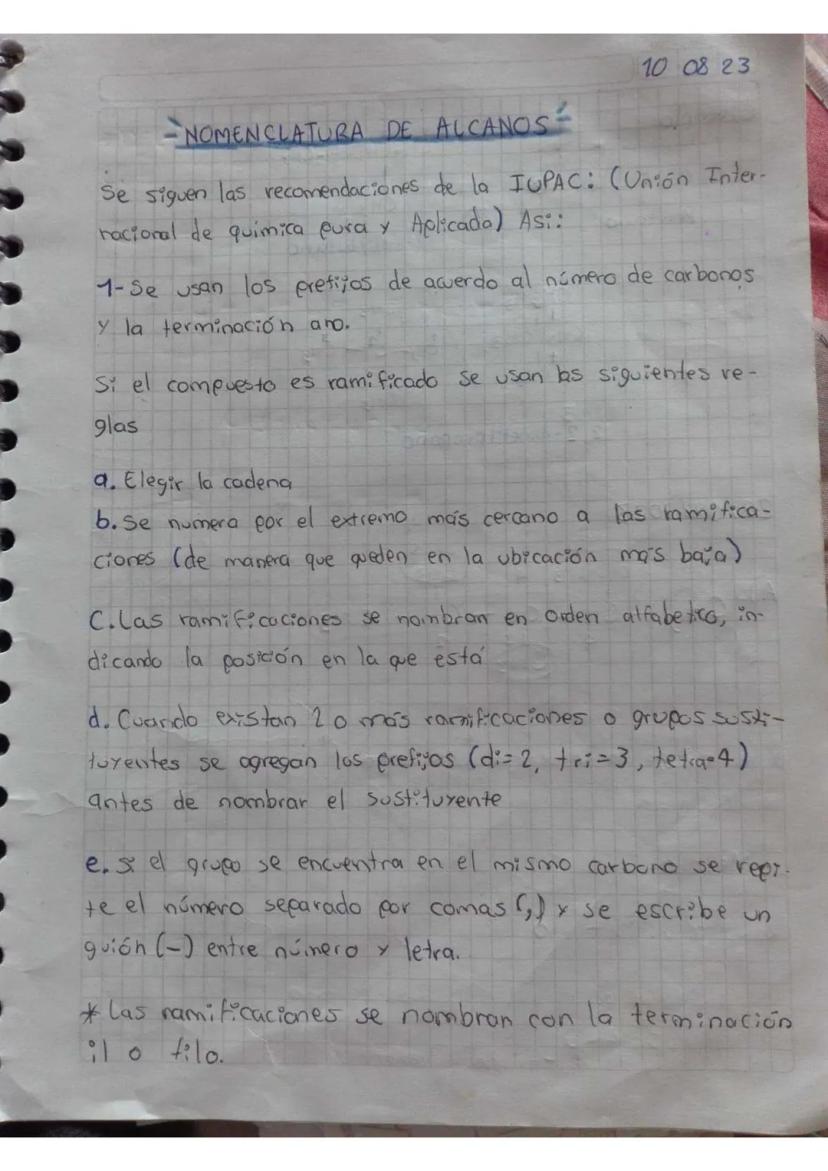 10 08 23
-NOMENCLATURA DE ALCANOS-
Se siguen las recomendaciones de la IUPAC: (Unión Inter-
nacional de quimica pura y Aplicada) Asi:
1- Se usan los prefijos de acuerdo al número de carbonos
y la terminación ano.
Si el compuesto es ramificado se usan las siguientes re-
glas
a. Elegir la cadena
b. Se numera por el extremo más cercano a las ramifica-
ciones (de manera que queden en la ubicación más baja)
C. Las ramificaciones se nombran en orden alfabetico, in-
dicando la posición en la que está
d. Cuando existan 2 o más ramificaciones o grupos susti-
tuyentes se agregan los prefijos (di=2, tri=3, tetra=4)
antes de nombrar el sustituyente
e. si el grupo se encuentra en el mismo carbono se repi-
te el número separado por comas (,) y se escribe un
guión (-) entre número y letra.
* Las ramificaciones se nombran con la terminación
il o tilo.